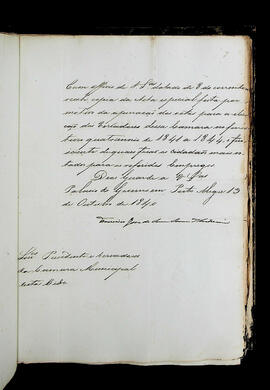 Com officio de V. Sas datado de 8 do corrente
recebi copia da Acta especial feita por
motivo da apuração dos votos para a elei-
ção dos Vereadores dessa Camara no futu-
ro quatriennio de 1841 a 1844, e fico
sciente de quaes são os cidadãos mais vo-
tados para os referidos Empregos.
Deos Guarde a V. Sas
Palacio do Governo em Porto Alegre 13
de Outubro de 1840
Snres Presidente e Vereadores
da Camara Municipal
desta Cide